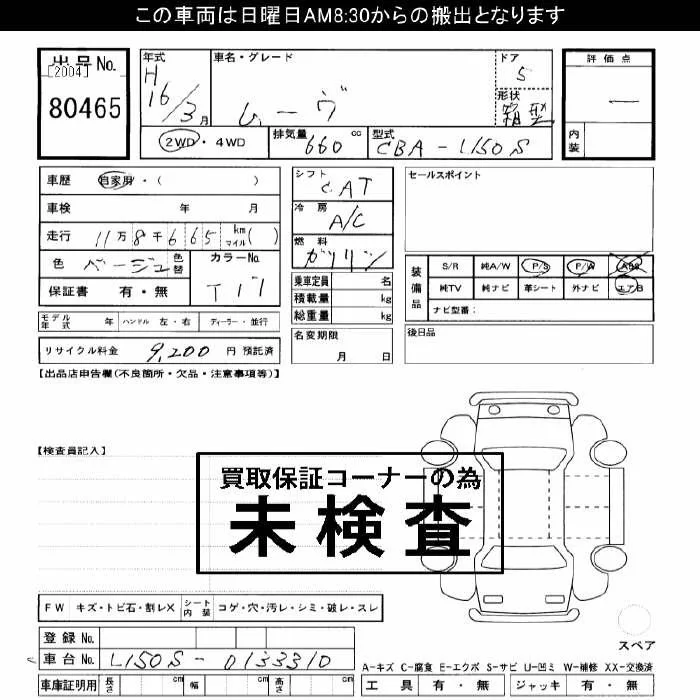 この車両は日曜日AM8:30からの搬出となります
出品No.
[2004]
80465
年式
H
16/3月
車名・グレード
ムーヴ
ドア
5
形状
箱型
評価点
内装
2WD・4WD
排気量
660 cc
型式
CBA-L150S
車歴 自家用・( )
車検 年 月
走行 11万8千665 km マイル( )
色 ベージュ 色替
カラーNo.
T17
保証書 有・無
シフト
CAT
冷房
A/C
燃料
ガソリン
乗車定員 名
積載量 kg
総重量 kg
セールスポイント
装備品
S/R 純A/W P/S P/W ABS
純TV 純ナビ 革シート 外ナビ エアB
ナビ型番:
モデル年式 年 ハンドル 左・右 ディーラー・並行
名変期限
月 日
後日品
リサイクル料金 9,200 円 預託済
【出品店申告欄(不良箇所・欠品・注意事項等)】
【検査員記入】
買取保証コーナーの為
未検査
FW キズ・トビ石・割レX シート内装 コゲ・穴・汚レ・シミ・破レ・スレ
スペア
登録No.
車台No. L150S-0133310
A-キズ C-腐食 E-エクボ S-サビ U-凹ミ W-補修 XX-交換済
車庫証明用 長さ cm 幅 cm 高さ cm
工具 有・無 ジャッキ 有・無